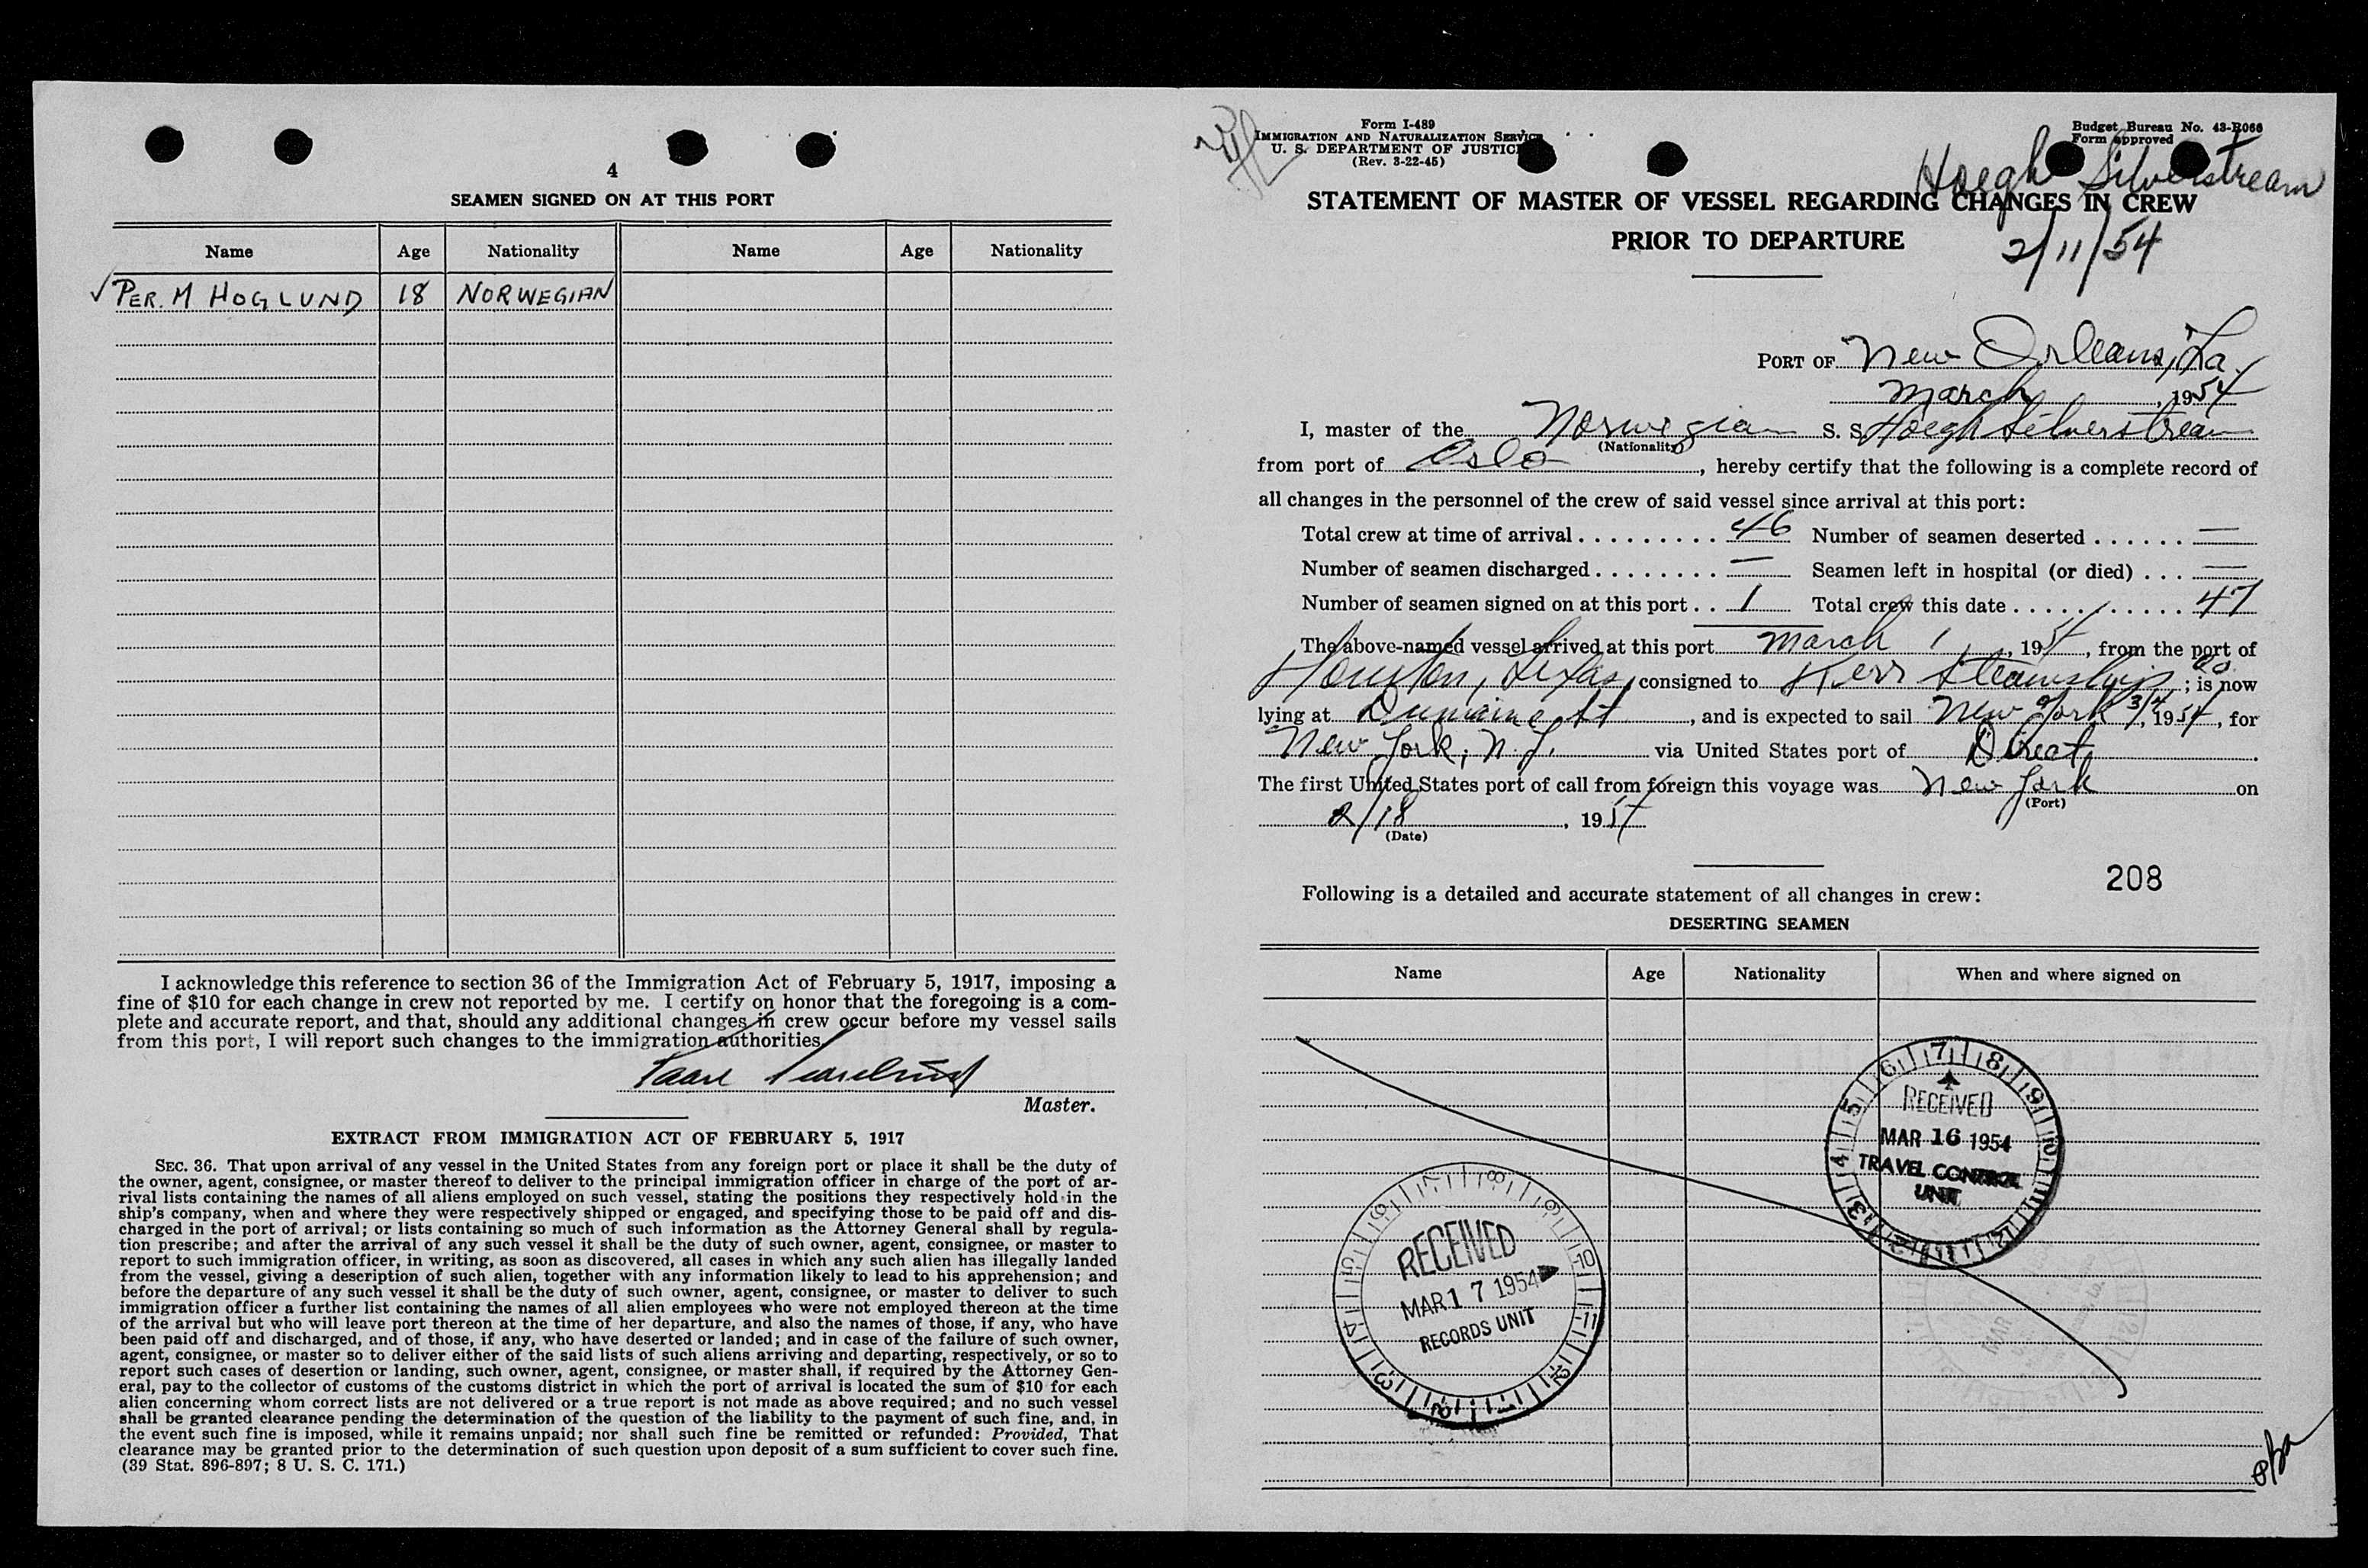 4
SEAMEN SIGNED ON AT THIS PORT
Name Age Nationality Name Age Nationality
✓ PER. M HOGLUND 18 NORWEGIAN
I acknowledge this reference to section 36 of the Immigration Act of February 5, 1917, imposing a
fine of $10 for each change in crew not reported by me. I certify on honor that the foregoing is a com-
plete and accurate report, and that, should any additional changes in crew occur before my vessel sails
from this port, I will report such changes to the immigration authorities.
Master.
EXTRACT FROM IMMIGRATION ACT OF FEBRUARY 5, 1917
SEC. 36. That upon arrival of any vessel in the United States from any foreign port or place it shall be the duty of
the owner, agent, consignee, or master thereof to deliver to the principal immigration officer in charge of the port of ar-
rival lists containing the names of all aliens employed on such vessel, stating the positions they respectively hold in the
ship's company, when and where they were respectively shipped or engaged, and specifying those to be paid off and dis-
charged in the port of arrival; or lists containing so much of such information as the Attorney General shall by regula-
tion prescribe; and after the arrival of any such vessel it shall be the duty of such owner, agent, consignee, or master to
report to such immigration officer, in writing, as soon as discovered, all cases in which any such alien has illegally landed
from the vessel, giving a description of such alien, together with any information likely to lead to his apprehension; and
before the departure of any such vessel it shall be the duty of such owner, agent, consignee, or master to deliver to such
immigration officer a further list containing the names of all alien employees who were not employed thereon at the time
of the arrival but who will leave port thereon at the time of her departure, and also the names of those, if any, who have
been paid off and discharged, and of those, if any, who have deserted or landed; and in case of the failure of such owner,
agent, consignee, or master so to deliver either of the said lists of such aliens arriving and departing, respectively, or so to
report such cases of desertion or landing, such owner, agent, consignee, or master shall, if required by the Attorney Gen-
eral, pay to the collector of customs of the customs district in which the port of arrival is located the sum of $10 for each
alien concerning whom correct lists are not delivered or a true report is not made as above required; and no such vessel
shall be granted clearance pending the determination of the question of the liability to the payment of such fine, and, in
the event such fine is imposed, while it remains unpaid; nor shall such fine be remitted or refunded: Provided, That
clearance may be granted prior to the determination of such question upon deposit of a sum sufficient to cover such fine.
(39 Stat. 896-897; 8 U. S. C. 171.)
Form I-489
IMMIGRATION AND NATURALIZATION SERVICE
U. S. DEPARTMENT OF JUSTICE
(Rev. 3-22-45)
Budget Bureau No. 43-R066
Form approved
Hoegh Silverstream
STATEMENT OF MASTER OF VESSEL REGARDING CHANGES IN CREW
PRIOR TO DEPARTURE
2/11/54
PORT OF New Orleans, La.
March, 1954
I, master of the Norwegian S. S. Hoegh Silverstream
(Nationality)
from port of Oslo, hereby certify that the following is a complete record of
all changes in the personnel of the crew of said vessel since arrival at this port:
Total crew at time of arrival 46 Number of seamen deserted —
Number of seamen discharged — Seamen left in hospital (or died) —
Number of seamen signed on at this port 1 Total crew this date 47
The above-named vessel arrived at this port March 1, 1954, from the port of
Houston, Texas, consigned to Kerr Steamship Co.; is now
lying at Dumaine St, and is expected to sail New York 3/, 1954, for
New York, N.Y. via United States port of Direct.
The first United States port of call from foreign this voyage was New York on
(Port)
2/18, 1954
(Date)
208
Following is a detailed and accurate statement of all changes in crew:
DESERTING SEAMEN
Name Age Nationality When and where signed on
RECEIVED
MAR 16 1954
TRAVEL CONTROL
UNIT
RECEIVED
MAR 17 1954
RECORDS UNIT